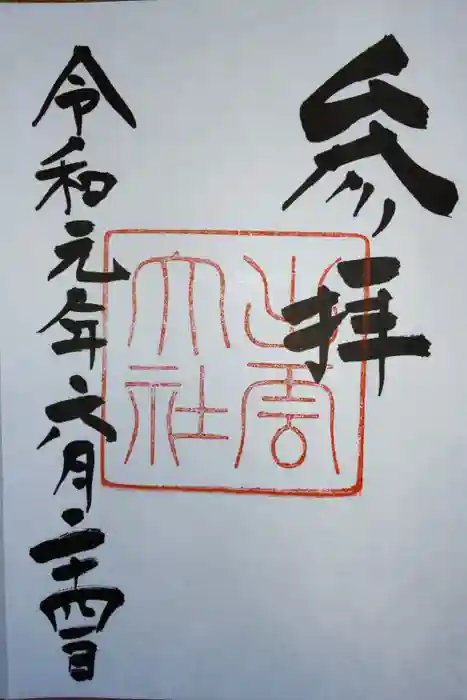 参拝
出雲
大社
令和元年六月二十四日